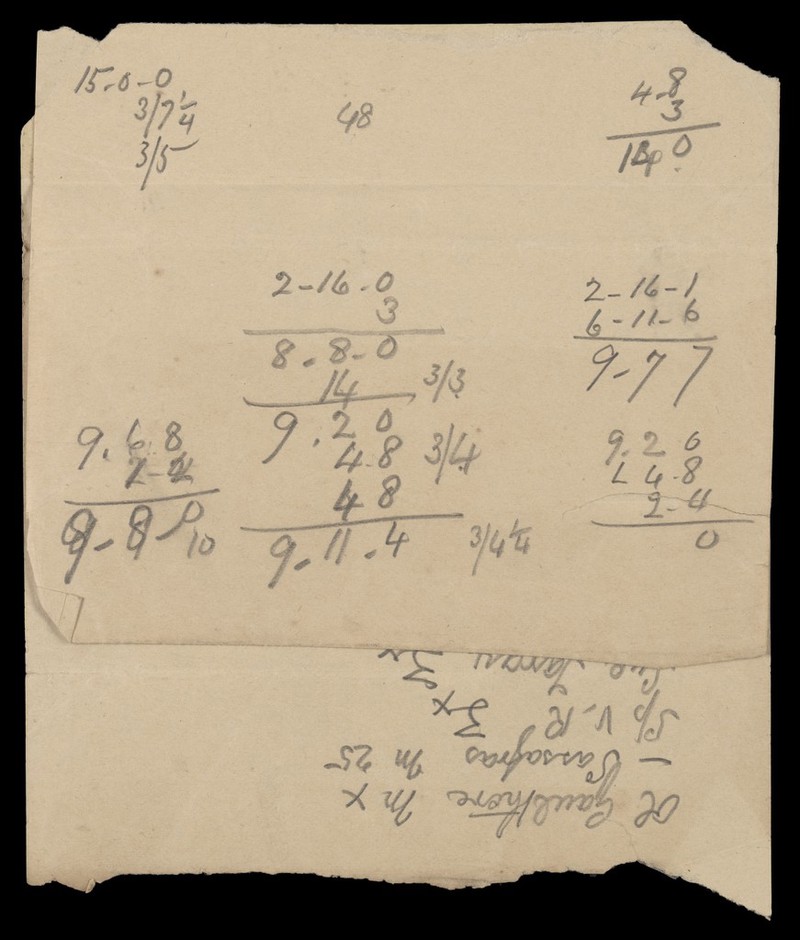 15-0-0
3/7¼
3/5
48
4-8
3
14 0
2-16-0
3
8-8-0
14 3/3
9.2 0
4-8 3/4
4 8
9-11-4 3/4¼
2-16-1
6-11-6
9-7 7
9.6.8
2-2
9-8-10
9.2 0
4-8
2-4
0
Ol Gaultherie m x
- Sassafras m 25
Sp V. R ʒ x
ʒ x